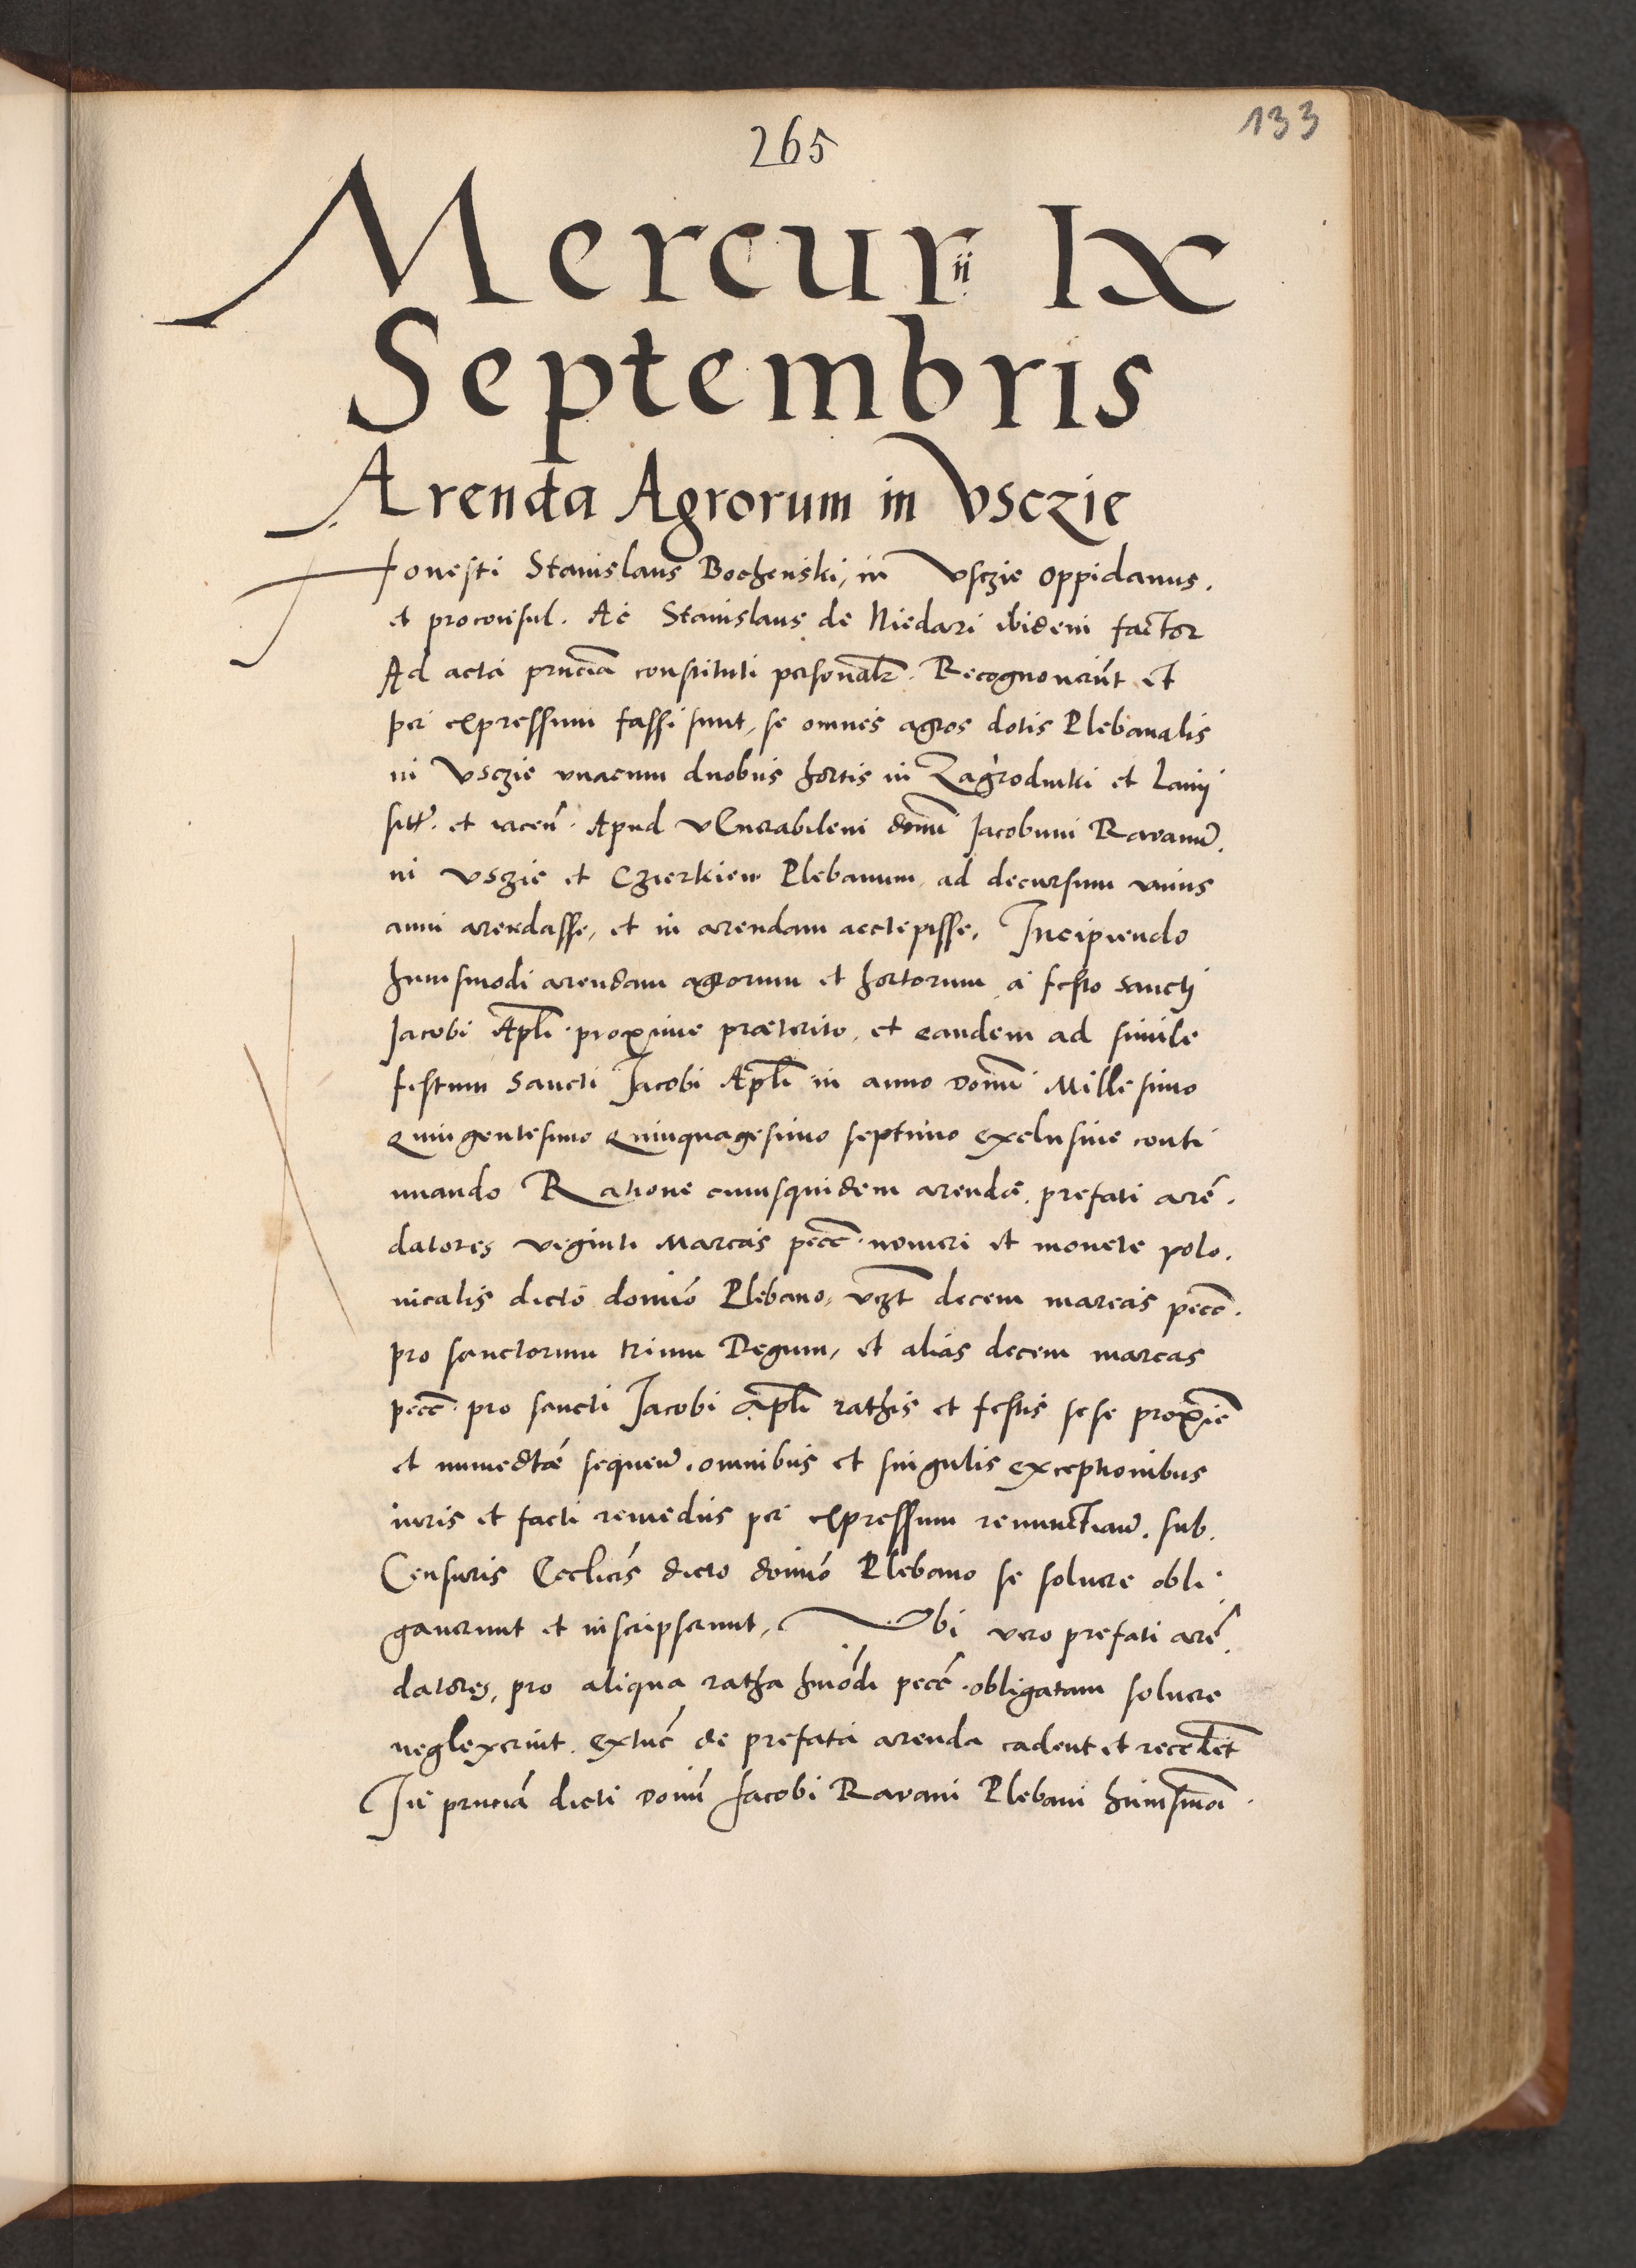 133
265
Mercurii IX
Septembris
Arenda Agrorum in Vsczie
Honesti Stanislaus Bochenski, in Vsczie oppidanus.
et proconsul. Ac Stanislaus de Niedari ibidem factor
Ad acta pñciã constituti personalr̃. Recognoverũt et
per expressum fassi sunt, se omnes agros dotis Plebanalis
in Vsczie vnacum duobus hortis in Zagrodniki et Lanij
sitt. et iaceñ. Apud vEnerabilem domĩ Jacobum Ravanum̃.
in Vsczie et Czierkiew Plebanum, ad decursum vnius
anni arendasse, et in arendam acctepisse, Incipiendo
huiusmodi arendam agrorum et hortorum a festo sancti
Jacobi Apl̃i proxime præterito, et eandem ad simile
festum sancti Jacobi Apl̃i in anno domĩ Millesimo
Quingentesimo Quinquagesimo septimo exclusiue conti
nuando Ratione cuiusquidem arendæ, prefati arẽ.
datores viginti Marcas pecc̃. numeri et monete polo.
nicalis dicto domiõ Plebano, vczt̃ decem marcas pecc̃.
pro sanctorum trium Regum, et alias decem marcas
pecc̃. pro sancti Jacobi apl̃i rathis et festis sese proxiẽ
et immedtæ̃ sequeñ. omnibus et singulis exceptionibus
iuris et facti remediis per expressum renunctiañ. sub.
Censuris Eccl̃icis dicto domiõ Plebano se soluere obli
gauerunt et inscripserunt, Vbi vero prefati arẽ.
datores, pro aliqua ratha hmõdi pecc̃. obligatam soluere
neglexerint. extũc de prefata arenda cadent et recedẽt
In pñciã dicti domĩ Jacobi Ravani Plebani huiusmõi.